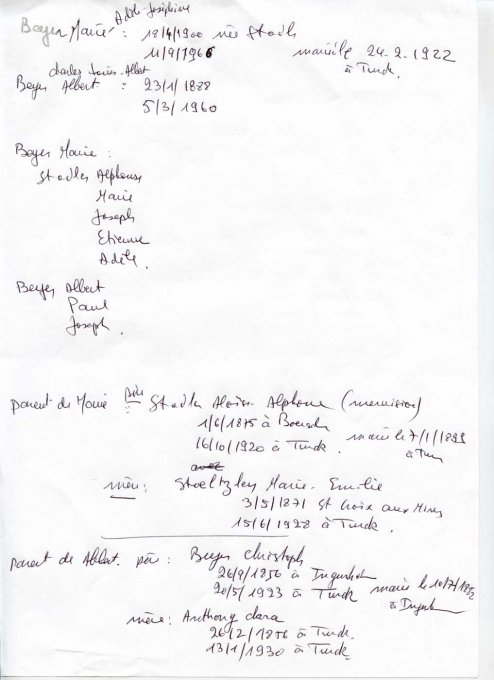 Adèle-Joséphine
Beyer Marie : 18/4/1900 née Stadler
11/9/1966 mariée 24.2.1922
à Turck.
Charles Louis-Albert
Beyer Albert : 23/1/1888
5/3/1960
Beyer Marie :
Stadler Alphonse
Marie
Joseph
Etienne
Adèle.
Beyer Albert
Paul
Joseph.
parent de Marie père : Stadler Aloise Alphonse (menuisier)
1/6/1875 à Boersch
16/10/1920 à Turck. marié le 7/1/1899
à Tur
avec
mère: Stoeltzlen Marie-Emilie
3/5/1871 St Croix aux Mines
15/6/1928 à Turck.
parent de Albert. père : Beyer Christoph
26/9/1856 à Ingersheim
20/5/1923 à Turck marié le 10/7/1882
à Ingersh
mère: Anthony Clara
26/2/1856 à Turck.
13/1/1930 à Turck